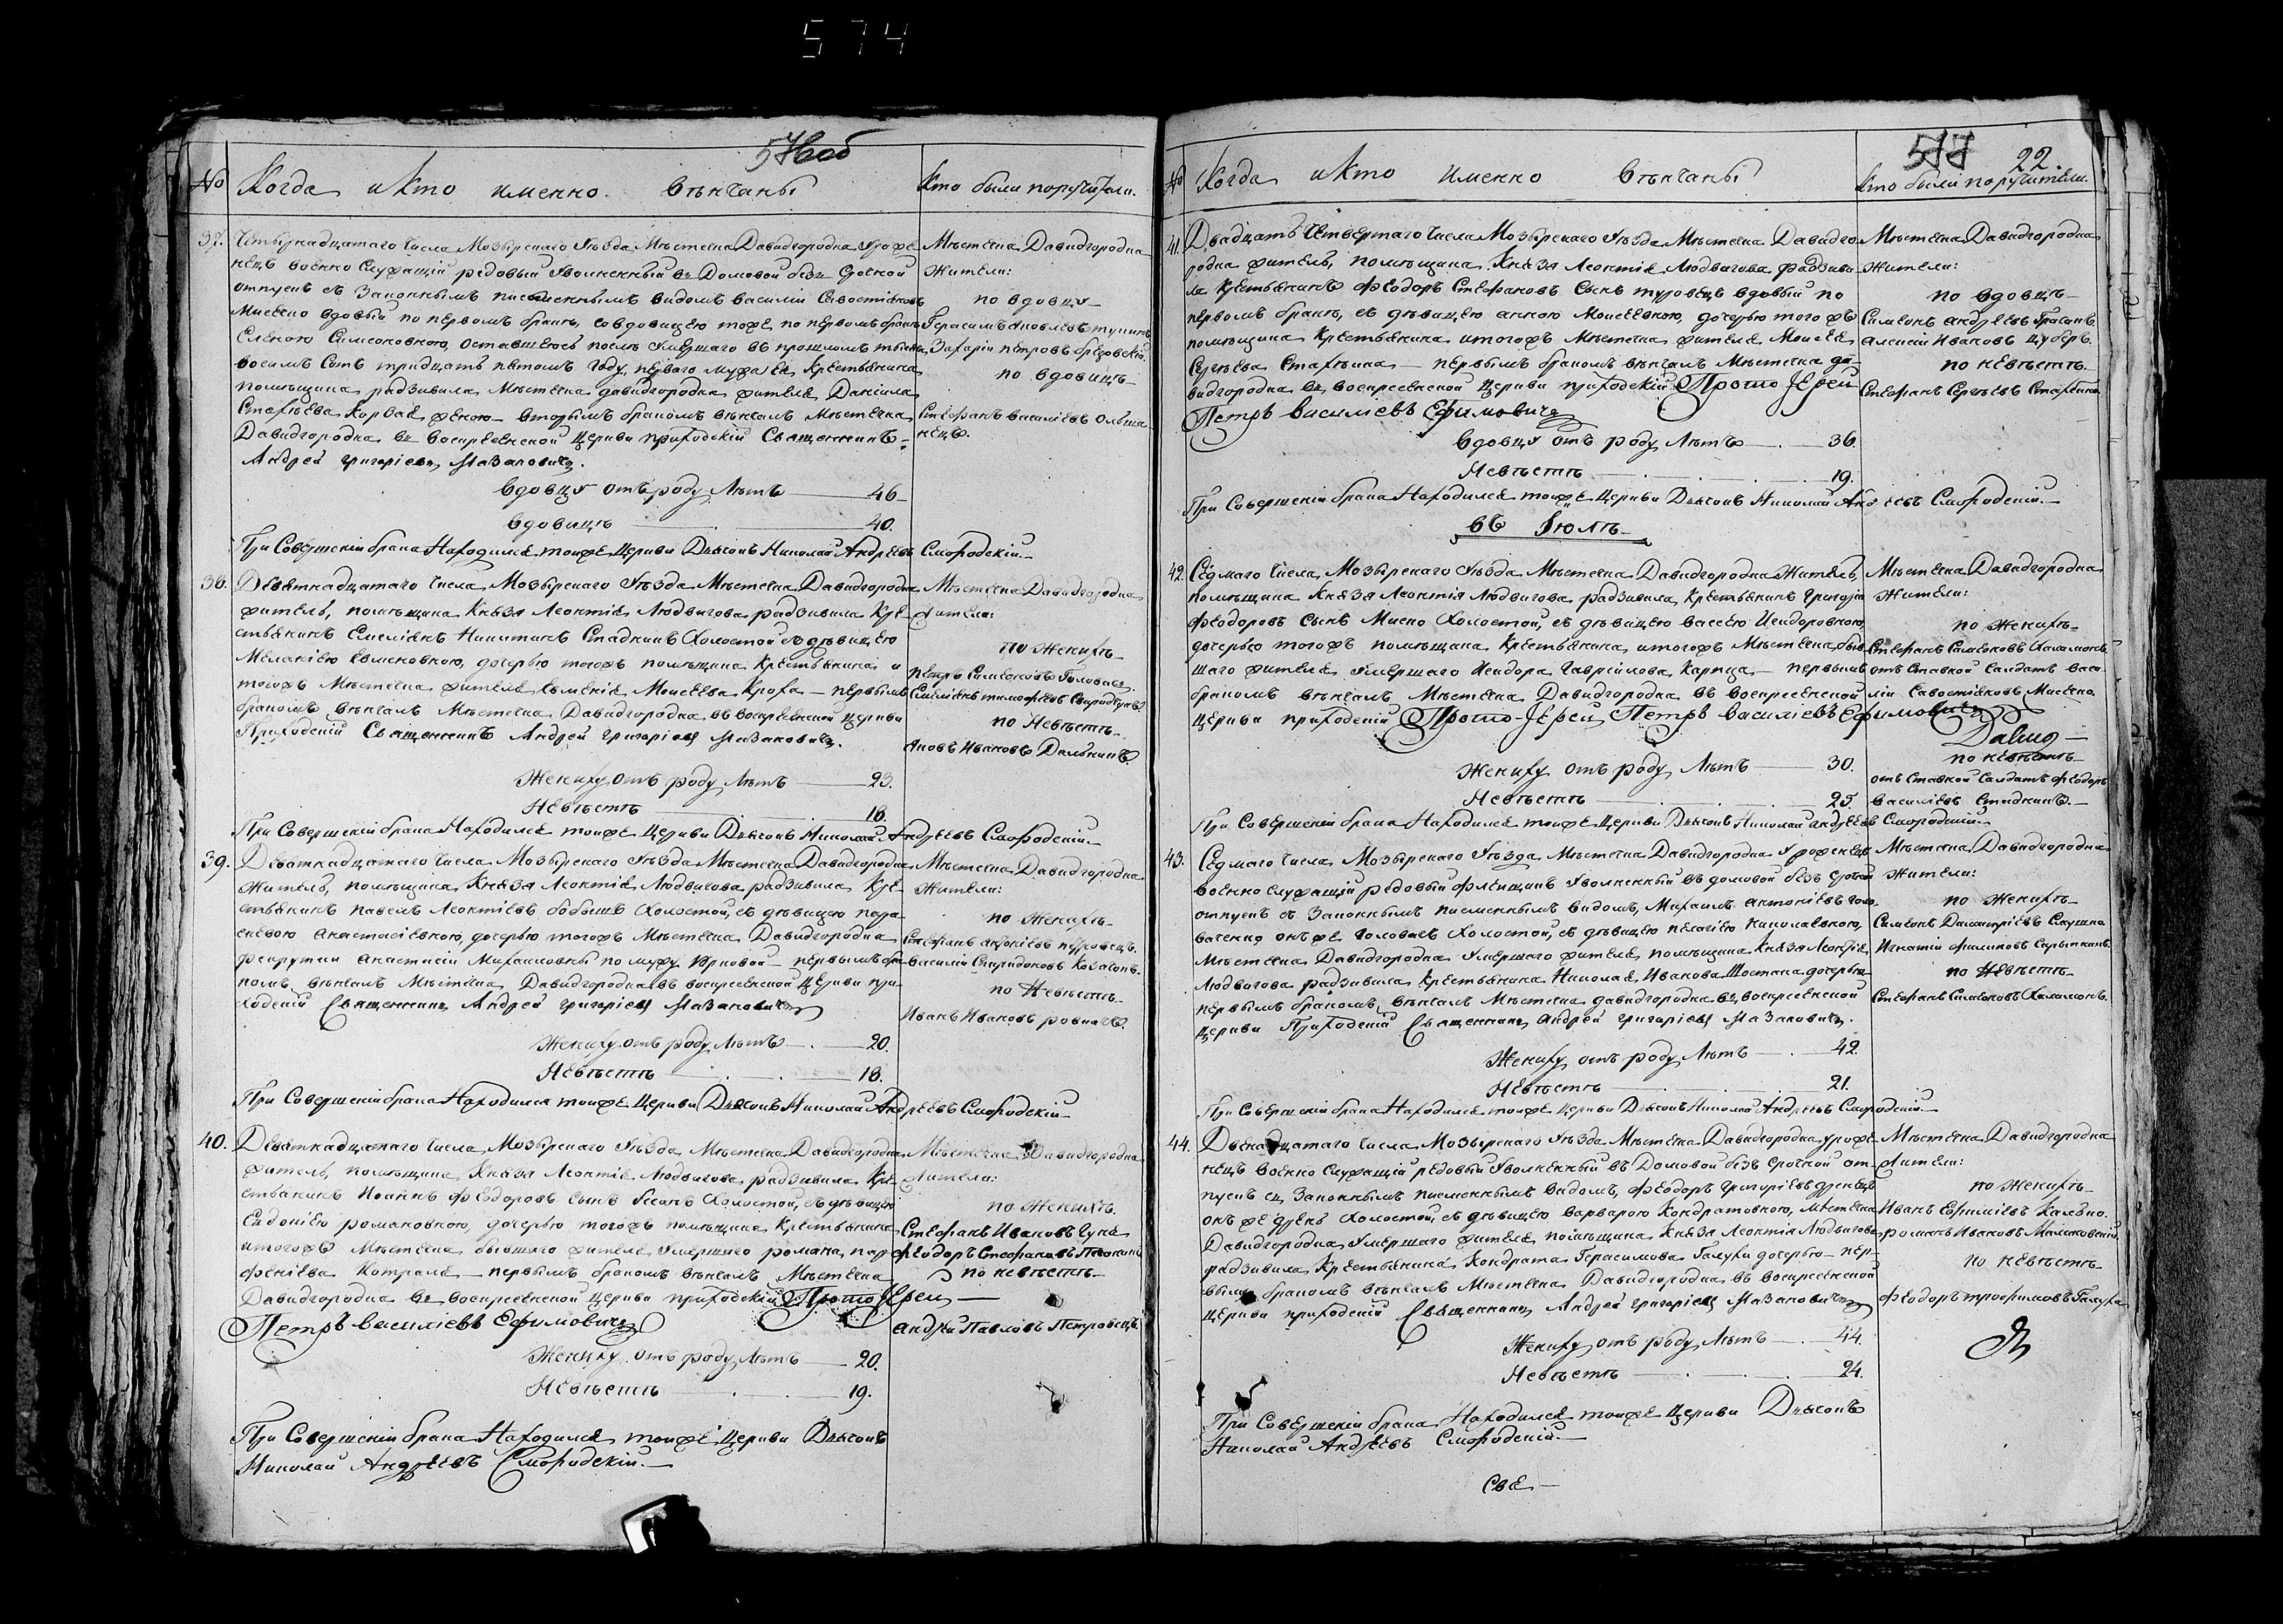 574
576 об
№ Когда и кто именно вѣнчаны
Кто были поручители.
37. Четырнадцатаго числа Мозырскаго уѣзда Мѣстечка Давидгородка уроже
нецъ военно служащій редовый уволненный въ домовой безъ срочной
отпускъ съ законнымъ письменнымъ видомъ Василій Савостіяновъ
Мисечко вдовый по первомъ бракѣ, со вдовицею тоже по первомъ бракѣ
Еленою Симеоновною, оставшеюсь послѣ умершаго въ прошломъ тысяча
восемъ сотъ тридцать пятомъ году, перваго мужа ея крестьянина
помѣщика радзивила Мѣстечка давидгородка жителя Даніила
женою вторымъ бракомъ вѣнчалъ Мѣстечка
Давидгородка въ Воскресенской церкви приходскій Священникъ
Андрей григоріевъ Мазановичъ.
вдовцу отъ роду лѣтъ 46
вдовицѣ 40.
При Совершеніи брака Находился тоиже церкви Діяконъ Николай Андреевъ Смородскій
Мѣстечка Давидгородка
Жители:
по вдовцу
Герасимъ Яковлевъ
Захарій петровъ
по вдовицѣ
Стефанъ василіевъ Ольша
нецъ.
38. Девятнадцатаго числа Мозырскаго уѣзда Мѣстечка Давидгородка
житель, помѣщика Князя Леонтія Людвигова радзивила кре
стьянинъ Емеліянъ Никитинъ Стадникъ Холостой, съ дѣвицею
Меланіею дочерью тогожъ помѣщика крестьянина и
тогожъ Мѣстечка жителя Моисеева первымъ
бракомъ вѣнчалъ Мѣстечка Давидгородка въ воскресенской церкви
Приходскій Священникъ Андрей григоріевъ Мазановичъ.
Жениху отъ роду лѣтъ 23.
Невѣстѣ 18.
При Совершеніи брака Находился тоиже церкви Діяконъ Николай Андреевъ Смородскій
Мѣстечка Давидгородка
жители:
по Жениху
петръ Симеоновъ Головачъ.
Симеонъ тимофеевъ
по Невѣстѣ
Яковъ Ивановъ
39. Девятнадцатаго числа Мозырскаго уѣзда Мѣстечка Давидгородка
Житель, помѣщика Князя Леонтія Людвигова радзивила кре
стьянинъ павелъ Леонтіевъ бобышъ Холостой, съ дѣвицею пара
скевою Анастасіевною, дочерью тогожъ Мѣстечка Давидгородка
Анастасіи Михаиловны по мужу первымъ бра
комъ вѣнчалъ Мѣстечка Давидгородка въ воскресенской церкви при
ходскій Священникъ Андрей григоріевъ Мазановичъ
Жениху отъ роду лѣтъ 20.
Невѣстѣ 18.
При Совершеніи брака Находился тоиже церкви Діяконъ Николай Андреевъ Смородскій
Мѣстечка Давидгородка
Жители:
по Жениху
Стефанъ антоніевъ петровецъ.
Василій Спиридоновъ
по Невѣстѣ
Иванъ Ивановъ
40. Девятнадцатаго числа Мозырскаго уѣзда Мѣстечка Давидгородка
житель, помѣщика Князя Леонтія Людвигова радзивила Кре
стьянинъ Иоаннъ Феодоровъ сынъ Холостой, съ дѣвицею
Евдокіею романовною, дочерью тогожъ помѣщика крестьянина
итогожъ Мѣстечка бывшаго жителя умершаго романа пар
феніева первымъ бракомъ вѣнчалъ Мѣстечка
Давидгородка въ воскресенской церкви приходскій Прото Іерей
Петръ Василіевъ Ефимовичъ
Жениху отъ роду лѣтъ 20.
Невѣстѣ 19.
При Совершеніи брака Находился тоиже церкви Діяконъ
Николай Андреевъ Смородскій.
Мѣстечка Давидгородка
жители:
по Жениху.
Стефанъ Ивановъ
Феодоръ Стефановъ
по невѣстѣ
андрей Павловъ Петровецъ
577 22.
№ Когда и кто именно вѣнчаны
Кто были поручители.
41. Двадцать Четвертаго числа Мозырскаго уѣзда Мѣстечка Давидго
родка житель, помѣщика Князя Леонтія Людвигова радзиви
ла крестьянинъ Феодоръ Стефановъ сынъ туровецъ вдовый по
первомъ бракѣ, съ дѣвицею анною Моисеевною, дочерью того жъ
помѣщика крестьянина итогожъ Мѣстечка жителя Моисея
Сергѣева первымъ бракомъ вѣнчалъ Мѣстечка да
видгородка въ воскресенской церкви приходскій Прото Іерей
Петръ Василіевъ Ефимовичъ
вдовцу отъ роду лѣтъ 36.
Невѣстѣ 19.
При Совершеніи брака Находился тоиже церкви Діяконъ Николай Андреевъ Смородскій.
Мѣстечка Давидгородка
Жители:
по вдовцѣ
Симеонъ андреевъ
алексій Ивановъ цуберъ.
по невѣстѣ.
Стефанъ Сергѣевъ
въ Іюлѣ
42. Седмаго числа, Мозырскаго уѣзда Мѣстечка Давидгородка Житель,
помѣщика Князя Леонтія Людвигова радзивила крестьянинъ Григорій
Феодоровъ сынъ Мисно Холостой, съ дѣвицею Вассою Исидоровною,
дочерью тогожъ помѣщика крестьянина итогожъ Мѣстечка быв
шаго жителя умершаго Исидора Гавриілова Карпца первымъ
бракомъ вѣнчалъ Мѣстечка Давидгородка въ воскресенской
церкви приходскій Прото-Іерей Петръ Василіевъ Ефимовичъ
Жениху отъ роду лѣтъ 30.
Невѣстѣ 25.
При Совершеніи брака Находился тоиже церкви Діяконъ Николай андреевъ Смородскій.
Мѣстечка Давидгородка
Жители:
по Жениху
Стефанъ Симеоновъ Халимонъ.
отъ Ставной Салдатъ васи
лій Савостіяновъ Мисечко
по невѣстѣ
отъ Ставной Салдатъ Феодоръ
василіевъ Стадникъ.
43. Седмаго числа, Мозырскаго уѣзда Мѣстечка Давидгородка уроженецъ
военно служащій редовый уволненный въ домовой безъ срочной
отпускъ съ законнымъ писменнымъ видомъ, Михаилъ антоніевъ голо
ваченко онъ же головачъ Холостой, съ дѣвицею пелагіею николаевною,
Мѣстечка Давидгородка умершаго жителя, помѣщика Князя Леонтія
Людвигова радзивила крестьянина Николая Иванова Шостака дочерью
первымъ бракомъ, вѣнчалъ Мѣстечка давидгородка въ воскресенской
церкви Приходскій Священникъ андрей григоріевъ Мазановичъ.
Жениху отъ роду лѣтъ 42
Невѣстѣ 21.
При Совершеніи брака Находился тоиже церкви Діяконъ Николай Андреевъ Смородскій
Мѣстечка Давидгородка
жители:
по Жениху
Симеонъ Димитріевъ
Игнатій филиповъ
по Невѣстѣ
Стефанъ Симеоновъ Халимонъ.
44. Двенадцатаго числа Мозырскаго уѣзда Мѣстечка Давидгородка уроже
нецъ военно служащій редовый уволненный въ домовой безъ срочной от
пускъ съ законнымъ писменнымъ видомъ, Феодоръ григоріевъ
онъ же Холостой, съ дѣвицею варварою Кондратовною, Мѣстечка
Давидгородка умершаго жителя помѣщика Князя Леонтія Людвигова
радзивила крестьянина Кондрата Герасимова Галухи дочерью пер
вымъ бракомъ вѣнчалъ Мѣстечка Давидгородка въ воскресенской
церкви приходскій Священникъ Андрей григоріевъ Мазановичъ
Жениху отъ роду лѣтъ 44.
Невѣстѣ 24.
При Совершеніи брака Находился тоиже церкви Діяконъ
Николай Андреевъ Смородскій.
Мѣстечка Давидгородка
жители:
по Жениху
Иванъ Ефиміевъ
романъ Ивановъ
по невѣстѣ
Феодоръ трофимовъ Галуха